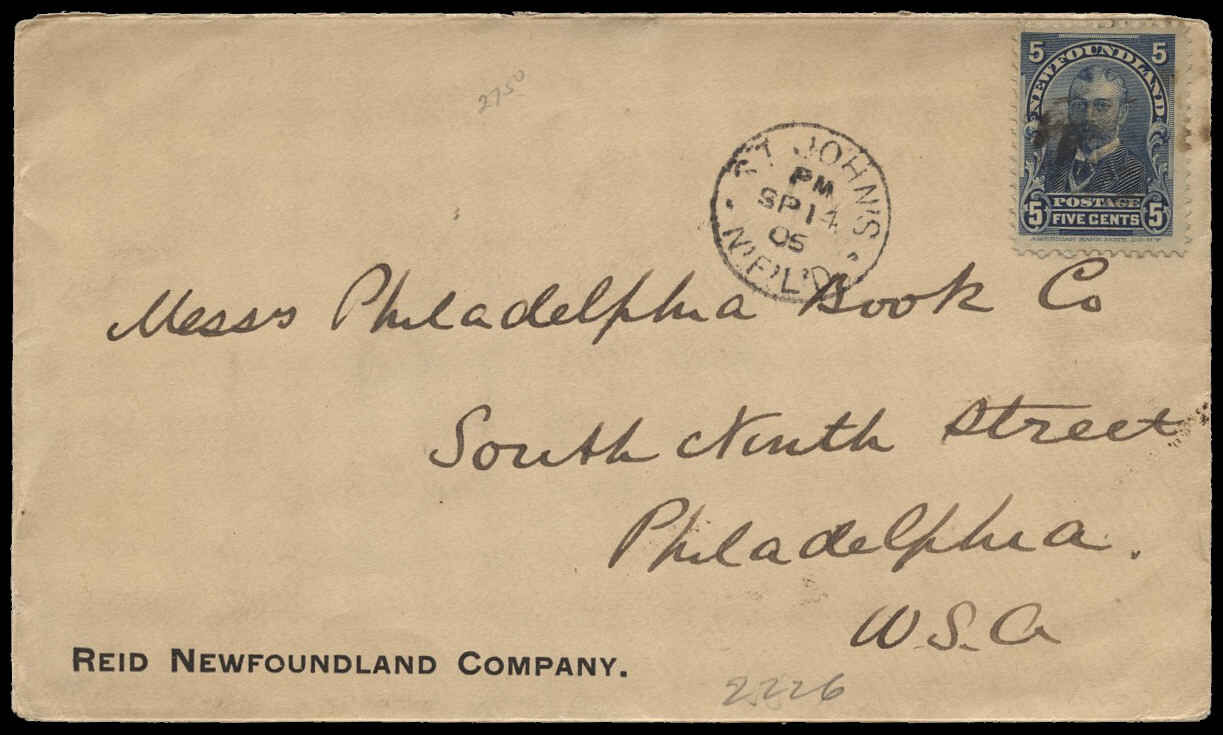 5 5
NEWFOUNDLAND
5 POSTAGE 5
FIVE CENTS
AMERICAN BANK NOTE CO. N.Y.
2750
ST JOHN'S
PM
SP 14
05
N'F'L'D
Mess's Philadelphia Book Co
South Ninth Street
Philadelphia.
U.S.A
REID NEWFOUNDLAND COMPANY.
2226